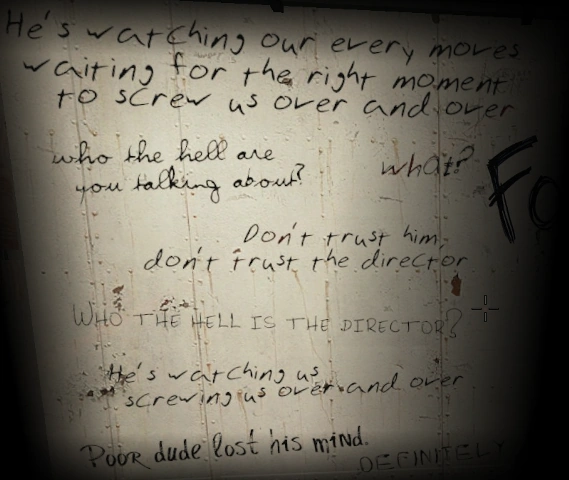 He's watching our every moves
waiting for the right moment
to screw us over and over
who the hell are
you talking about?
what?
Fo
Don't trust him,
don't trust the director
WHO THE HELL IS THE DIRECTOR?
He's watching us
screwing us over and over
Poor dude lost his mind.
DEFINITELY